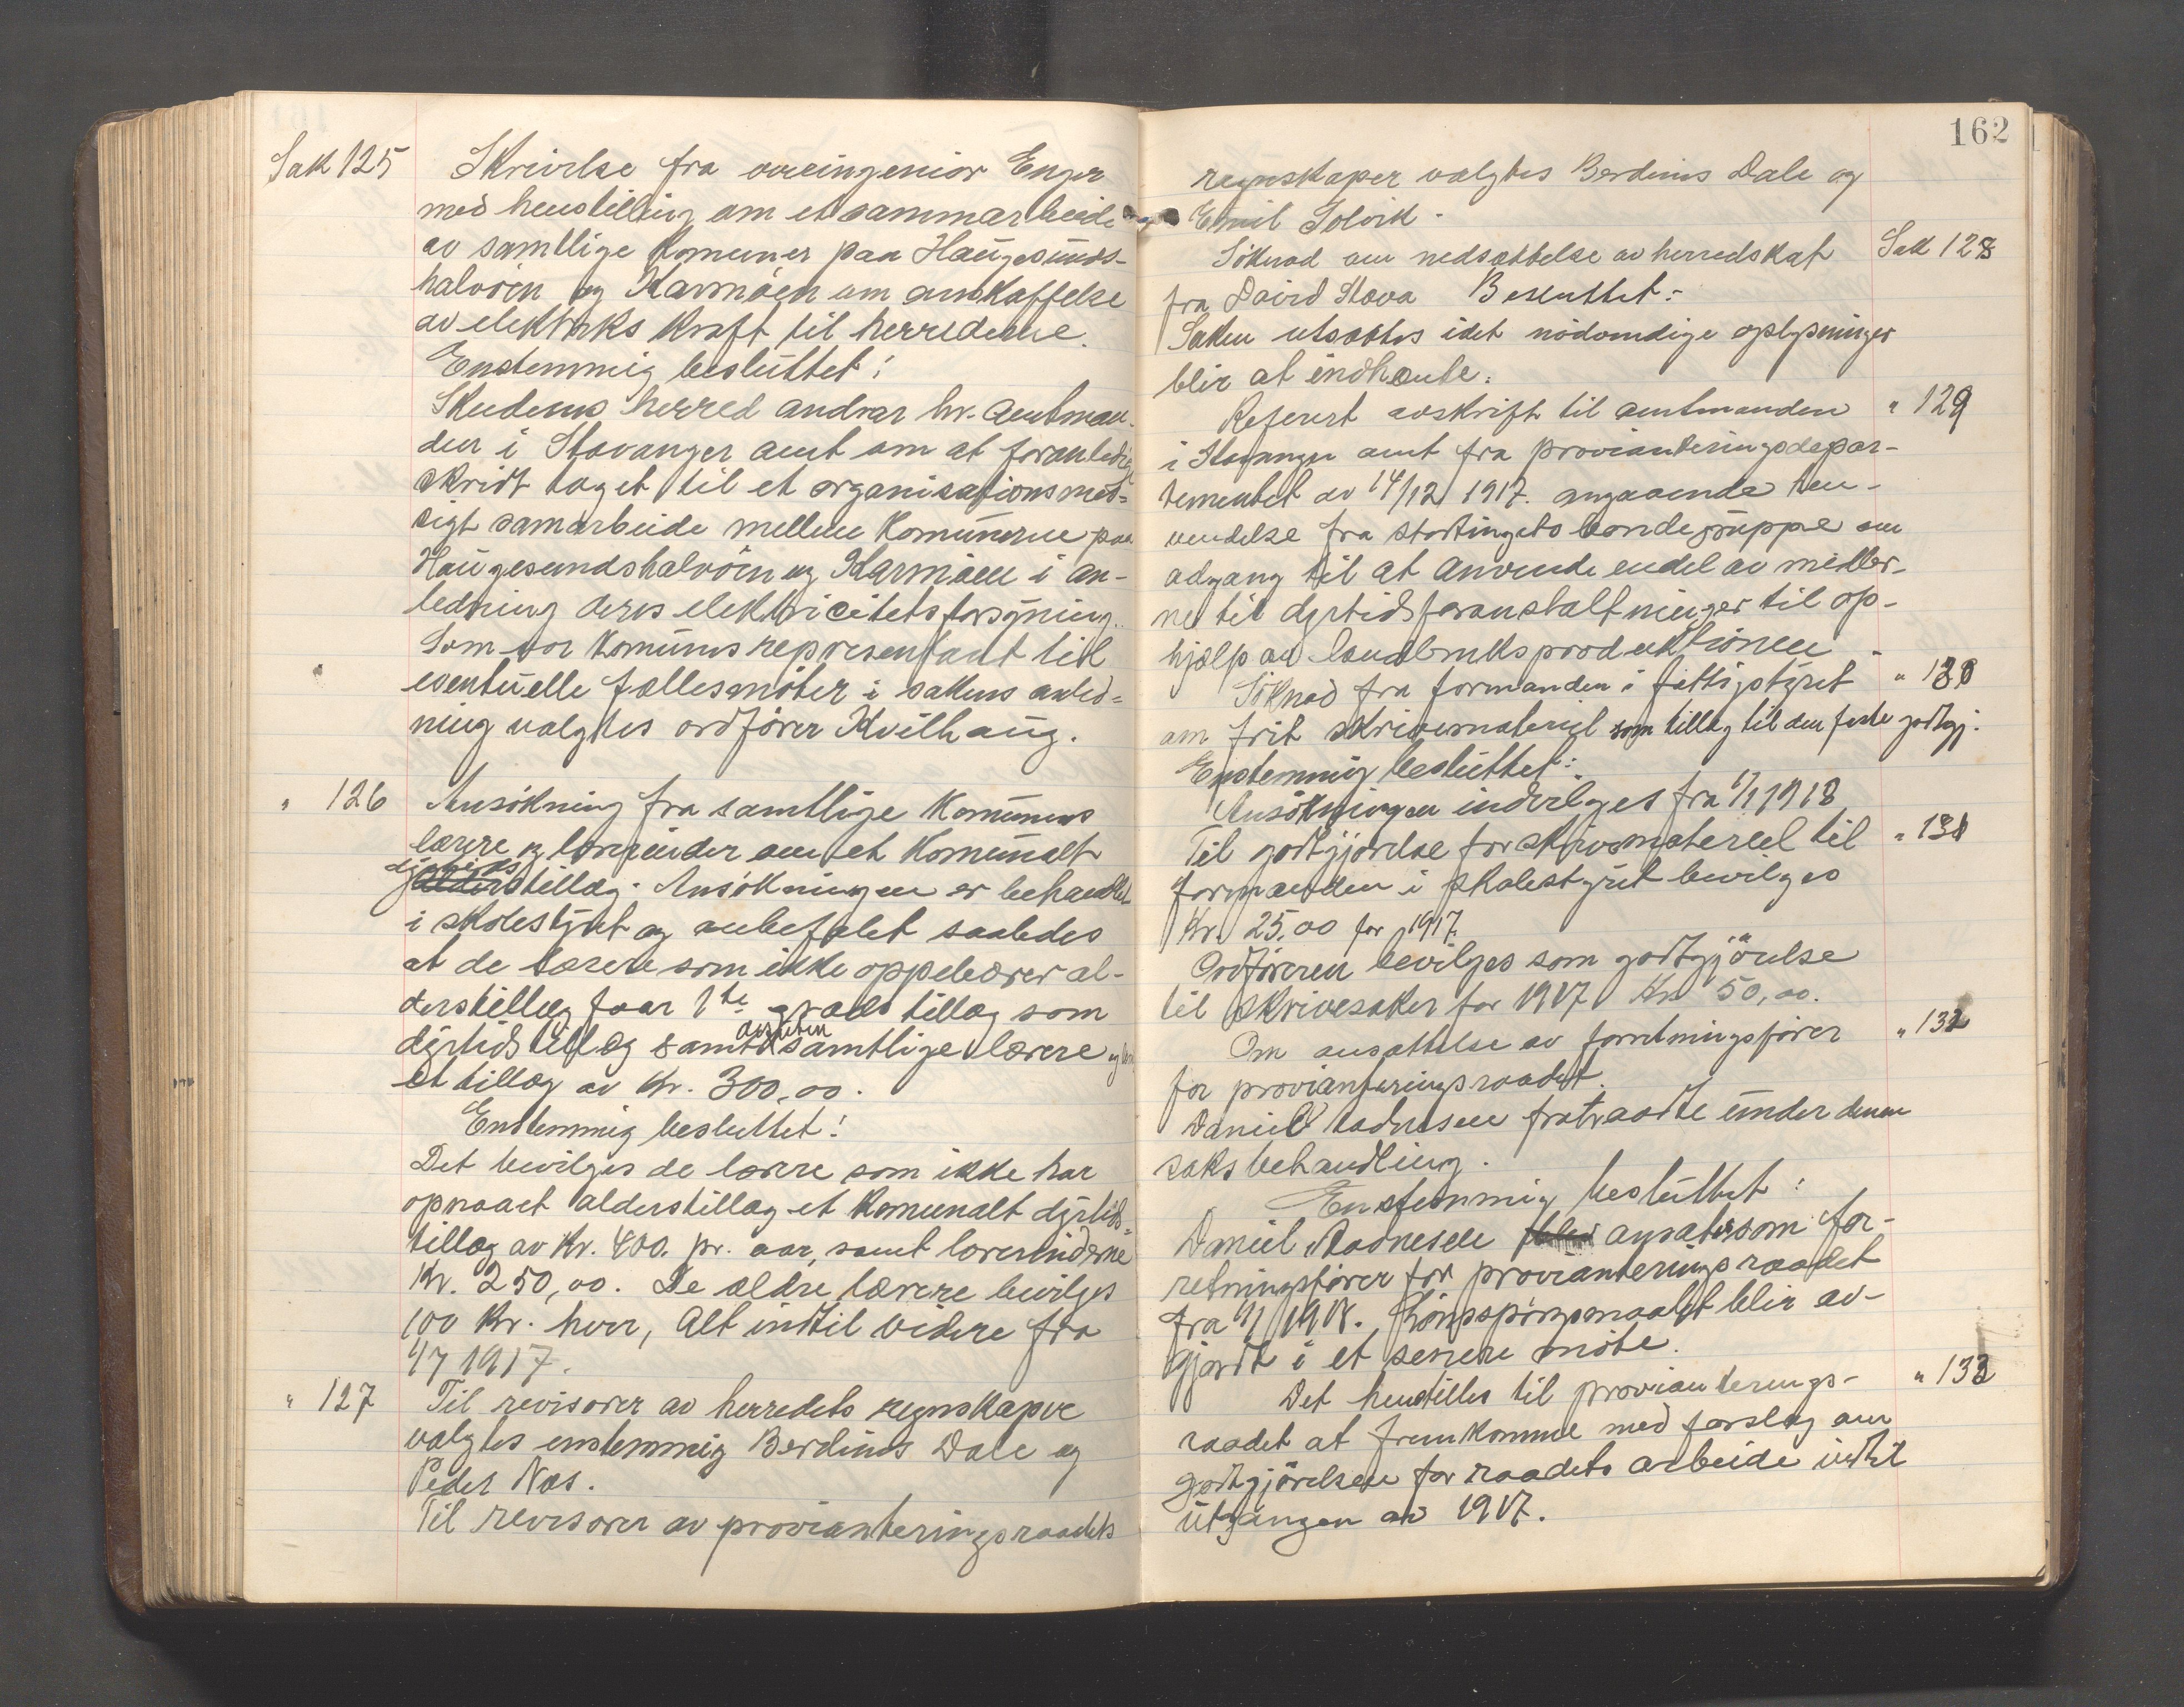 Sak 125 Skrivelse fra overingeniør Enger
med henstilling om et sammarbeide
av samtlige Komuner paa Haugesunds-
halvöen og Karmöen om anskaffelse
av elektriks kraft til herrederne.
Enstemmig besluttet:
Skudenes herred andrar hr. Amtman-
den i Stavanger amt om at foranledige
skridt taget til et organisationsmæs-
sigt samarbeide mellem Komunerne paa
Haugesundshalvöen og Karmöen i an-
ledning deres elektricitetsforsyning.
Som vor Komunes repræsentant til
eventuelle fællesmöter i sakens anled-
ning valgtes ordförer Kvilhaug.
" 126 Ansökning fra samtlige Komunens
lærere og lærerinder om et Komunalt
dyrtids
alderstillæg. Ansökningen er behandlet
i skolestyret og anbefalet saaledes
at de lærere som ikke oppebærer al-
derstillæg faar 1ste grads tillæg som
desuten
dyrtidstillæg samt samtlige lærere og
et tillæg av Kr. 300,00.
Enstemmig besluttet:
Det bevilges de lærere som ikke har
opnaaet alderstillæg et Komunalt dyrtids-
tillæg av Kr. 400. pr. aar, samt lærerinderne
Kr. 250,00. De ældre lærere bevilges
100 Kr. hver, Alt indtil videre fra
1/7 1917.
" 127 Til revisorer av herredets regnskaper
valgtes enstemmig Berdines Dale og
Peder Næs.
Til revisorer av provianteringsraadets
162
regnskaper valgtes Berdines Dale og
Emil Solvik.
Söknad om nedsættelse av herredskat Sak 128
fra David Stava Besluttet:
Saken utsættes idet nödvendige oplysninger
blir at indhente.
Referert avskrift til amtmanden " 129
i Stavanger amt fra provianteringsdepar-
tementet av 14/12 1917. angaaende hen-
vendelse fra stortingets bondegruppe om
adgang til at anvende endel av midler-
ne til dyrtidsforanstaltninger til op-
hjælp av landbruksproduktionen.
Söknad fra formanden i fattigstyret " 130
om frit skrivemateriel som tillæg til den faste godtgj.
Enstemmig besluttet:
Ansökningen indvilges fra 1/1 1918
Til godtgjörelse for skrivemateriel til " 131
formanden i skolestyret bevilges
Kr. 25,00 for 1917.
Ordföreren bevilges som godtgjörelse
til skrivesaker for 1917 Kr 50,00.
Om ansættelse av forretningsförer " 132
for provianteringsraadet.
Daniel Aadnesen fratraadte under denne
saksbehandling.
Enstemmig besluttet:
Daniel Aadnesen ansættes som for-
retningsförer for provianteringsraadet
fra 1/1 1918. Lönsspörgsmaalet blir av-
gjordt i et senere möte.
Det henstilles til provianterings- " 133
raadet at fremkomme med forslag om
godtgjörelsen for raadets arbeide indtil
utgangen av 1917.